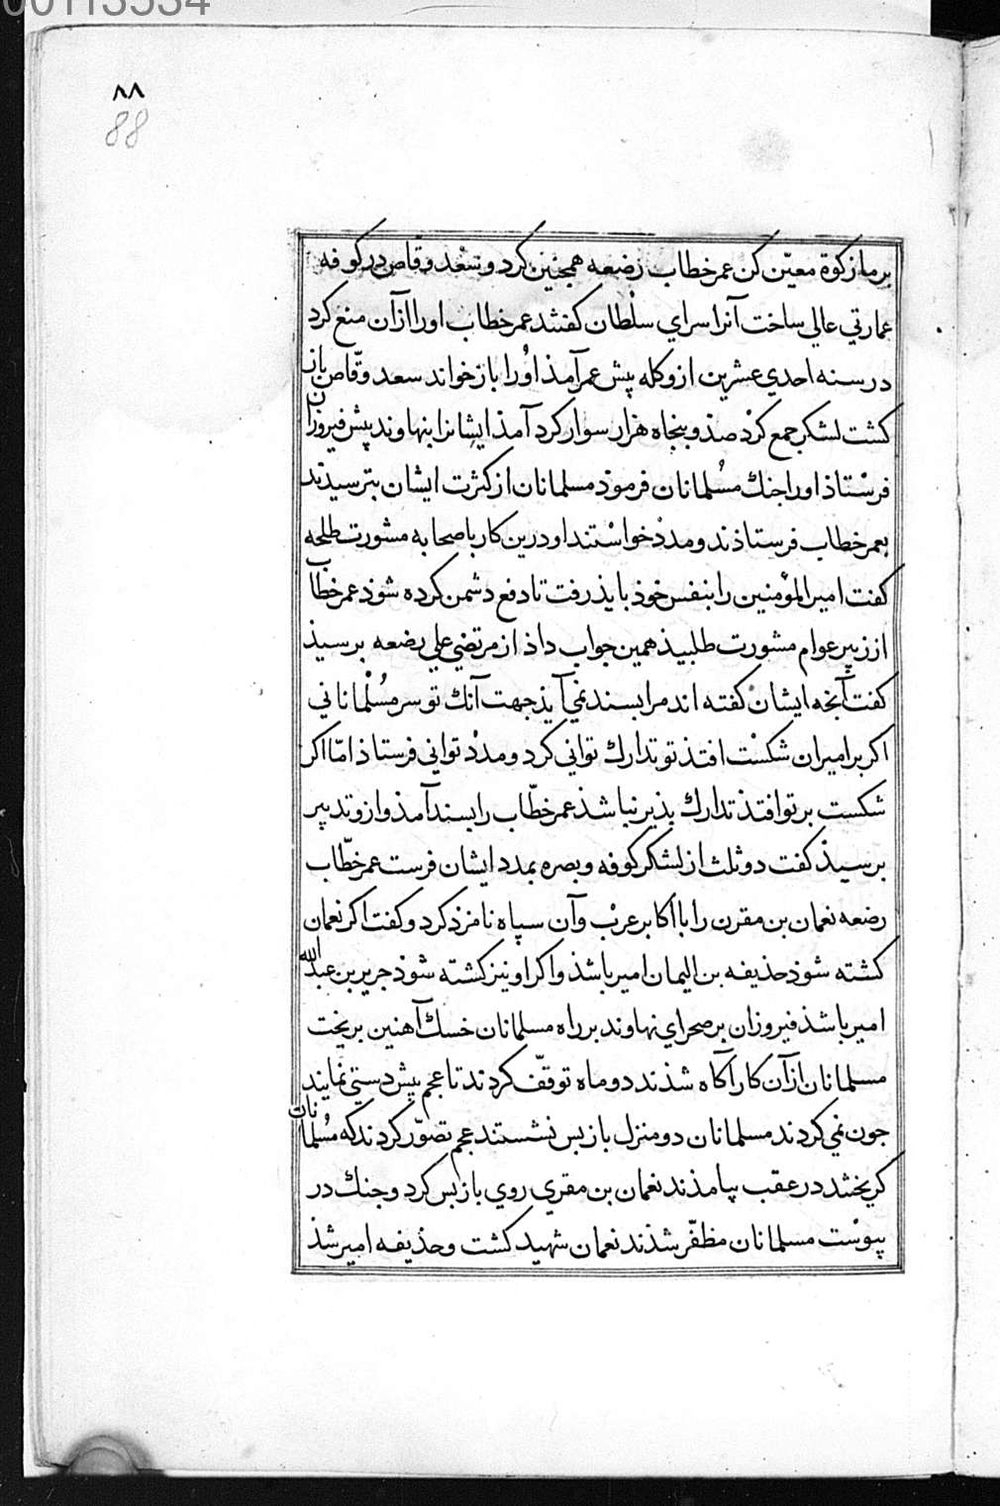 00113534
٨٨
88
بر ما زكوة معيّن كن عمر خطاب رضعه همجنين كرد و سعد وقاص در كوفه
عمارتي عالي ساخت آنرا سراي سلطان كفتند عمر خطاب او را از آن منع كرد
در سنه احدي عشرين از و كله پيش عمر آمذ او را باز خواند سعد وقّاص باز
كشت لشكر جمع كرد صذ و پنجاه هزار سوار كرد آمذ ايشانرا بنهاوند پيش فيروزان
فرستاذ اورا جنك مسلمانان فرموذ مسلمانان از كثرت ايشان بترسيدند
بعمر خطاب فرستاذند و مدد خواستند او درين كار با صحابه مشورت طلحه
كفت امير المؤمنين را بنفس خوذ بايذ رفت تا دفع دشمن كرده شوذ عمر خطاب
از زبير عوام مشورت طلبيذ همين جواب داذ از مرتضي علي رضعه برسيذ
كفت آنجه ايشان كفته اند مرا بسند نمي آيذ جهت آنك تو سر مسلماناني
اكر بر اميران شكست افتذ تو تدارك تواني كرد و مدد تواني فرستاذ امّا اكر
شكست بر تو افتذ تدارك بذير نباشذ عمر خطّاب را بسند آمذ و ازو تدبير
برسيذ كفت دو ثلث از لشكر كوفه و بصره بمدد ايشان فرست عمر خطّاب
رضعه نعمان بن مقرن را با اكابر عرب وآن سپاه نامزد كرد و كفت اكر نعمان
كشته شوذ حذيفه بن اليمان امير باشذ واكر او نيز كشته شوذ جرير بن عبد الله
امير باشذ فيروزان بر صحراي نهاوند بر راه مسلمانان خسك آهنين بريخت
مسلمانان از آن كار آكاه شذند دو ماه توقّف كردند تا عجم پيش دستي نمايند
جون نمي كردند مسلمانان دو منزل باز پس نشستند عجم تصوّر كردند كه مسلمانان
كريختند در عقب بيامذند نعمان بن مقري روي باز پس كرد و جنك در
پيوست مسلمانان مظفّر شذند نعمان شهيد كشت و حذيفه امير شذ